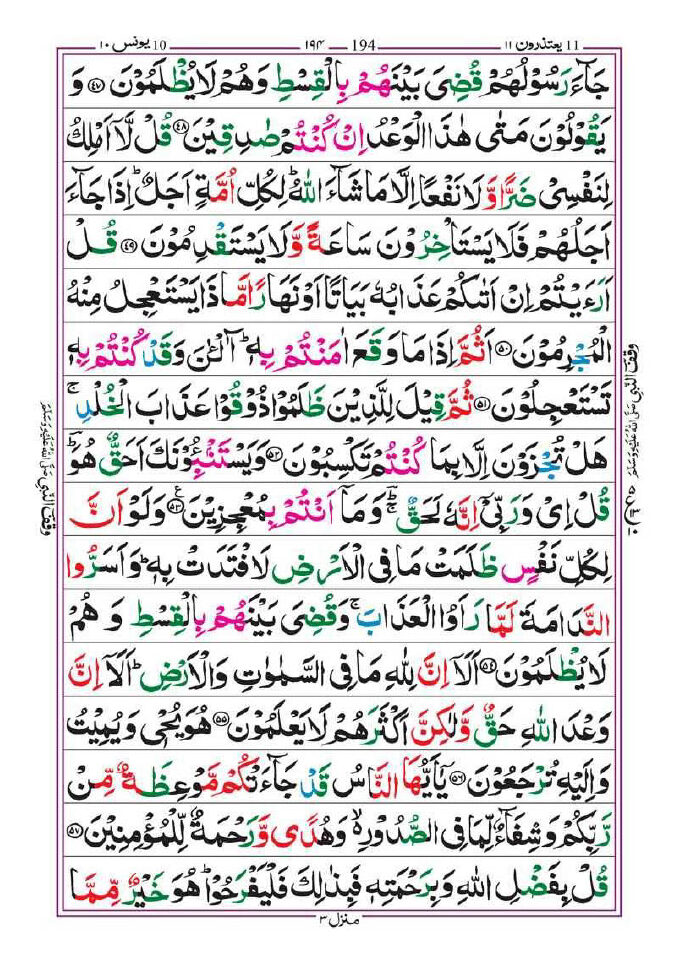 11 يعتذرون ١١ 194 ١٩۴ 10 يونس ١٠
جَآءَ رَسُوْلُهُمْ قُضِىَ بَيْنَهُمْ بِالْقِسْطِ وَهُمْ لَا يُظْلَمُوْنَ ۴۷ وَ
يَقُوْلُوْنَ مَتٰى هٰذَا الْوَعْدُ اِنْ كُنْتُمْ صٰدِقِيْنَ ۴۸ قُلْ لَّاۤ اَمْلِكُ
لِنَفْسِىْ ضَرًّا وَّلَا نَفْعًا اِلَّا مَا شَآءَ اللّٰهُ ؕ لِكُلِّ اُمَّةٍ اَجَلٌ ؕ اِذَا جَآءَ
اَجَلُهُمْ فَلَا يَسْتَاْخِرُوْنَ سَاعَةً وَّلَا يَسْتَقْدِمُوْنَ ۴۹ قُلْ
اَرَءَيْتُمْ اِنْ اَتٰىكُمْ عَذَابُهٗ بَيَاتًا اَوْ نَهَارًا مَّاذَا يَسْتَعْجِلُ مِنْهُ
الْمُجْرِمُوْنَ ۵۰ اَثُمَّ اِذَا مَا وَقَعَ اٰمَنْتُمْ بِهٖ ؕ آٰلْـٰٔنَ وَقَدْ كُنْتُمْ بِهٖ
تَسْتَعْجِلُوْنَ ۵۱ ثُمَّ قِيْلَ لِلَّذِيْنَ ظَلَمُوْا ذُوْقُوْا عَذَابَ الْخُلْدِ ۚ
هَلْ تُجْزَوْنَ اِلَّا بِمَا كُنْتُمْ تَكْسِبُوْنَ ۵۲ وَيَسْتَنْۢبِـُٔوْنَكَ اَحَقٌّ هُوَ ؕ
قُلْ اِىْ وَرَبِّىْۤ اِنَّهٗ لَحَقٌّ ؕۚ وَمَاۤ اَنْتُمْ بِمُعْجِزِيْنَ ۵۳ وَلَوْ اَنَّ
لِكُلِّ نَفْسٍ ظَلَمَتْ مَا فِى الْاَرْضِ لَافْتَدَتْ بِهٖ ؕ وَاَسَرُّوا
النَّدَامَةَ لَمَّا رَاَوُا الْعَذَابَ ۚ وَقُضِىَ بَيْنَهُمْ بِالْقِسْطِ وَهُمْ
لَا يُظْلَمُوْنَ ۵۴ اَلَاۤ اِنَّ لِلّٰهِ مَا فِى السَّمٰوٰتِ وَالْاَرْضِ ؕ اَلَاۤ اِنَّ
وَعْدَ اللّٰهِ حَقٌّ وَّلٰكِنَّ اَكْثَرَهُمْ لَا يَعْلَمُوْنَ ۵۵ هُوَ يُحْىٖ وَيُمِيْتُ
وَاِلَيْهِ تُرْجَعُوْنَ ۵۶ يٰۤاَيُّهَا النَّاسُ قَدْ جَآءَتْكُمْ مَّوْعِظَةٌ مِّنْ
رَّبِّكُمْ وَشِفَآءٌ لِّمَا فِى الصُّدُوْرِ ۙ وَهُدًى وَّرَحْمَةٌ لِّلْمُؤْمِنِيْنَ ۵۷
قُلْ بِفَضْلِ اللّٰهِ وَبِرَحْمَتِهٖ فَبِذٰلِكَ فَلْيَفْرَحُوْا ؕ هُوَ خَيْرٌ مِّمَّا
منزل ٣
وقف النبى صلى الله عليه وسلم
وقف النبى صلى الله عليه وسلم